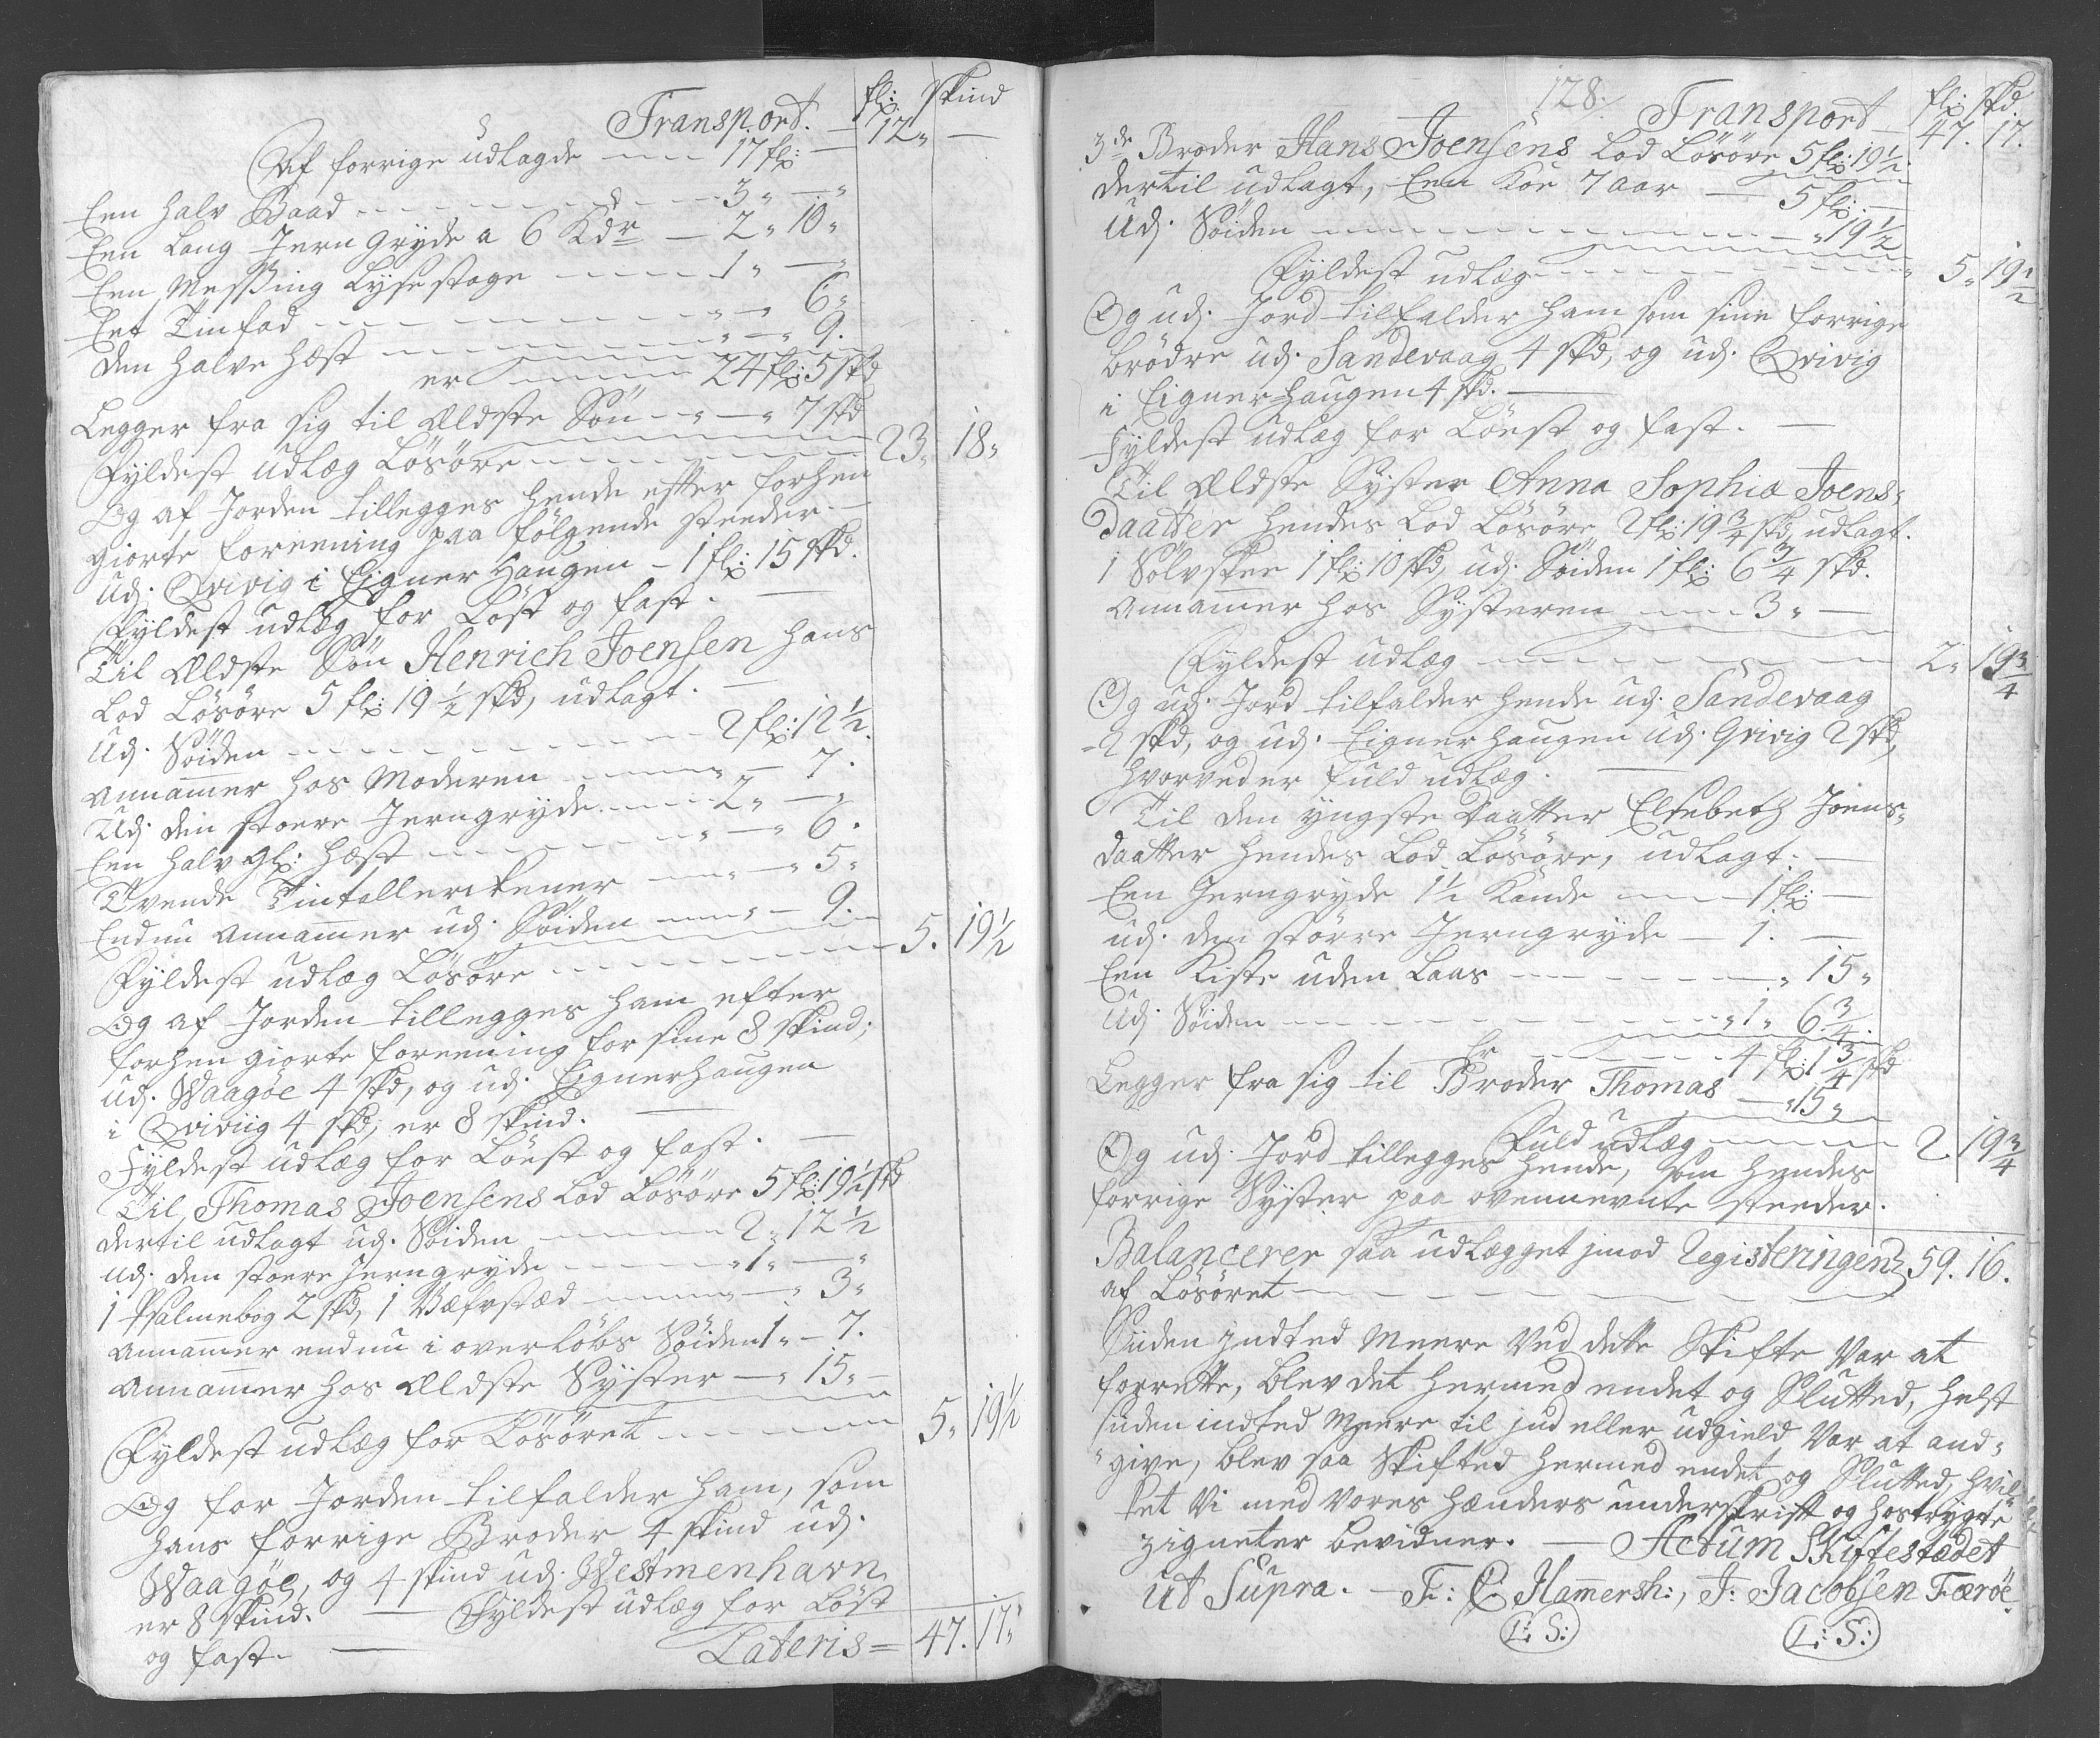 fl: skind
Transport. — 12„ —
Af forrige udlagde — 17 fl: —
Een halv Baad — 3„ —„
Een Lang Jern Gryde a 6 Kdr — 2„ 10„
Een Messing Lysestage — 1„ —„
Eet Tinfad — „ — 6„
den halve Hest — „ — „ 9.
er — 24 fl: 5 skd
Legger fra sig til Ældste Sön — „ — „ 7 skd
Fyldest udlæg Lösöre — 23„ 18„
Og af Jorden tillegges hende efter forhen
giorte foreening paa fölgende steeder. —
Udj. Qvivig i Eigner Haugen — 1 fl: 15 skd.
Fyldest udlæg for Löst og fast. —
Til Ældste Sön Henrich Joensen hans
Lod Lösöre 5 fl: 19 ½ skd, udlagt. —
Udj. Söiden — 2 fl: 12 ½.
Annammer hos Moderen — „ — 7.
Udj. den stoere Jerngryde — 2„ —„
Een halv gl: Hest — „ — „ 6.
Tvende Tintallerkener — „ — „ 5„
Endnu Annammer udj. Söiden — „ — 9. —
Fyldest udlæg Lösöre — 5. 19½
Og af Jorden tillegges ham efter
forhen giorte foreening for sine 8 skind;
udj. Waagöe 4 skd, og udj. Eignerhaugen
i Qviviig 4 skd, er 8 skind. —
Fyldest udlæg for Löest og fast. —
Til Thomas Joensens Lod Lösöre 5 fl: 19½ skd
dertil udlagt udj. Söiden — 2„ 12 ½
udj. den stoere Jerngryde — „ 1„ —„
1 Psalmebog 2 skd, 1 Væfvstæd — „ — „ 3„
Annammer endnu i overløbs Söiden 1„ — 7.
Annammer hos Ældste Syster — „ 15„ —
Fyldest udlæg for Lösöret — 5„ 19½
Og for Jorden tilfalder ham, som
hans forrige Broder 4 skind udj.
Waagöe, og 4 skind udj. Westmenhavn
er 8 skind. — Fyldest udlæg for Löst
og fast. — Lateris = 47. 17„
128. Transport fl: skd.
47. 17.
3de Broder Hans Joensens Lod Lösöre 5 fl: 19½
dertil udlagt, Een Koe 7 aar — 5 fl: —
Udj. Söiden — „ 19½
Fyldest udlæg — 5„ 19½
Og udj. Jord tilfalder ham som sine forrige
brödre udj. Sandevaag 4 skd, og udj. Qvivig
i Eignerhaugen 4 skd. —
Fyldest udlæg for Löest og fast. —
Til Ældste Syster Anna Sophia Joens„
Daatter hendes Lod Lösöre 2 fl: 19¾ skd, udlagt.
1 Sölvskee 1 fl: 10 skd, udj. Söiden 1 fl: 6¾ skd.
Annammer hos Systeren — 3„ —
Fyldest udlæg — 2„ 19¾
Og udj. Jord tilfalder hende udj. Sandevaag
2 skd, og udj. Eignerhaugen udj. Qvivig 2 skd,
hvorved er fuld udlæg. —
Til den yngste Daatter Elsebeth Joens„
daatter hendes Lod Lösöre, udlagt. —
Een Jerngryde 1½ Kande — 1 fl: —
udj. den större Jerngryde — 1. —
Een Kiste uden Laas — „ 15„
Udj. Söiden — „ 1„ 6¾.
Er — 4 fl: 1¾ skd
Legger fra sig til Broder Thomas — „ 15„
Fuld udlæg — 2. 19¾
Og udj. Jord tillegges hende, som hendes
forrige Syster paa ovennevnte steeder.
Balancerer saa udlægget jmod Registeringen
af Lösöret — 59. 16.
Siiden Jndted Meere Ved dette Skifte Var at
forrette, blev det hermed endet og Slutted, helst
siiden indted Meere til jnd eller udgield Var at and„
„give, blev saa Skifted hermed endet og Slutted, hvil„
ket Vi med Vores hænders underskrift og hostrygte
zigneter bevidner. — Actum Skiftestædet
ut Supra. — F: C: Hammersh:, J: Jacobsen Færöe.
L: S: L: S: